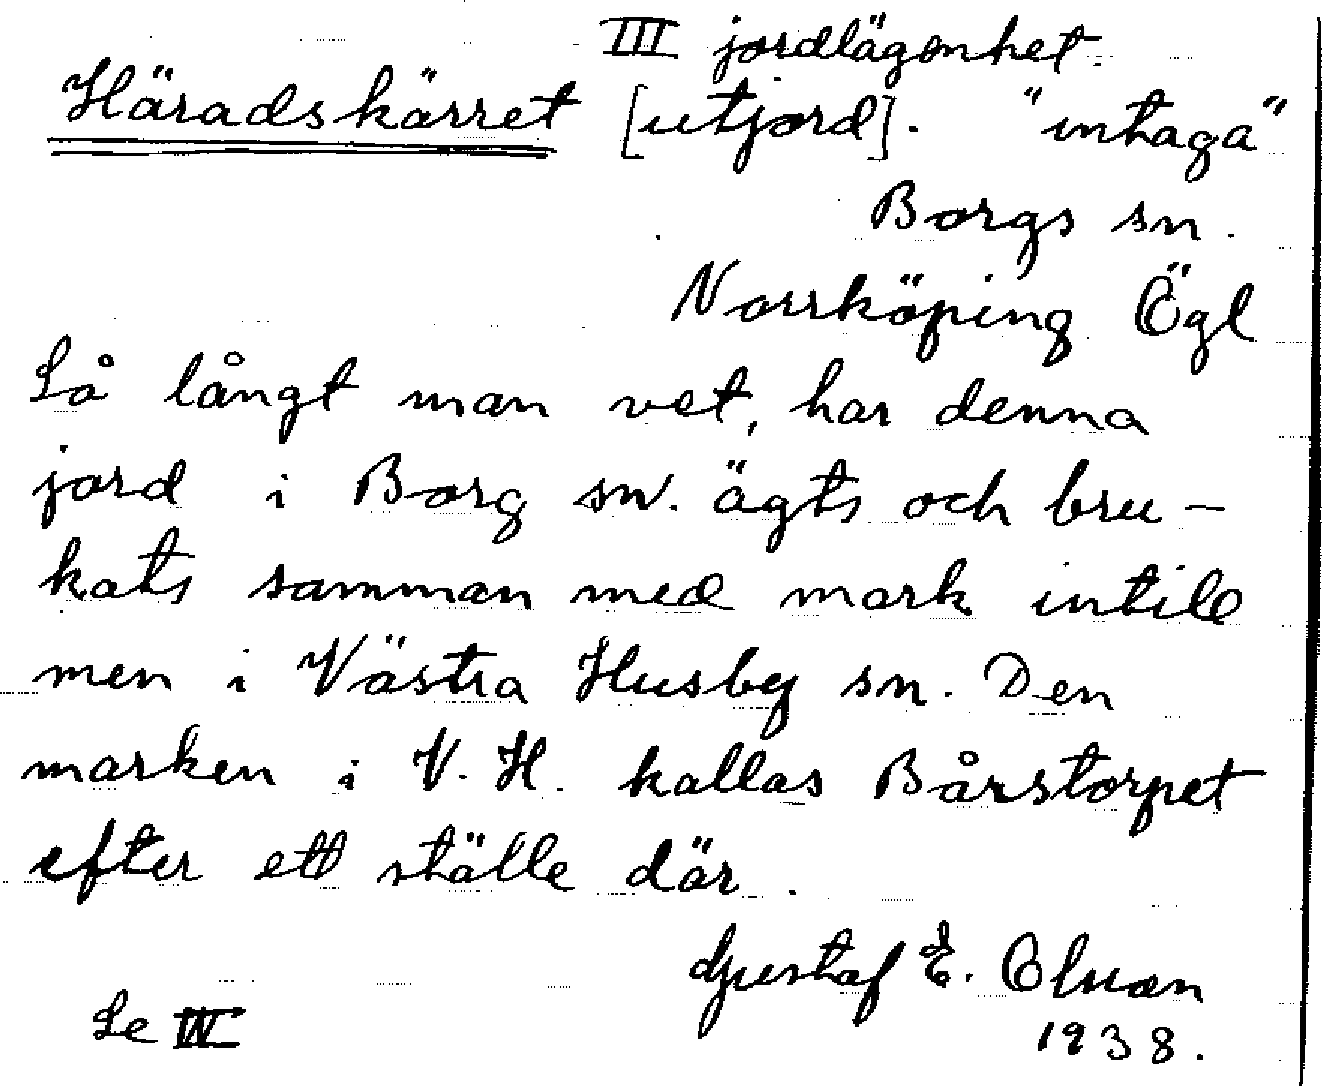 III jordlägenhet.
Häradskärret [utjord]. "intaga"
Borgs sn.
Norrköping Ögl
Så långt man vet, har denna
jord i Borg sn. ägts och bru-
kats samman med mark intill
men i Västra Husby sn. Den
marken i V. H. kallas Bårstorpet
efter ett ställe där.
Gustaf E.
1938.
Se IV